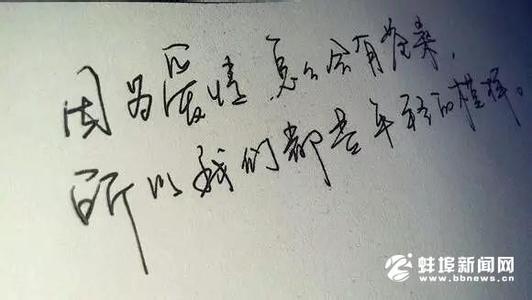 因为爱情怎么会有沧桑，
所以我们都是年轻的模样。
蚌埠新闻网
www.bbnews.cn